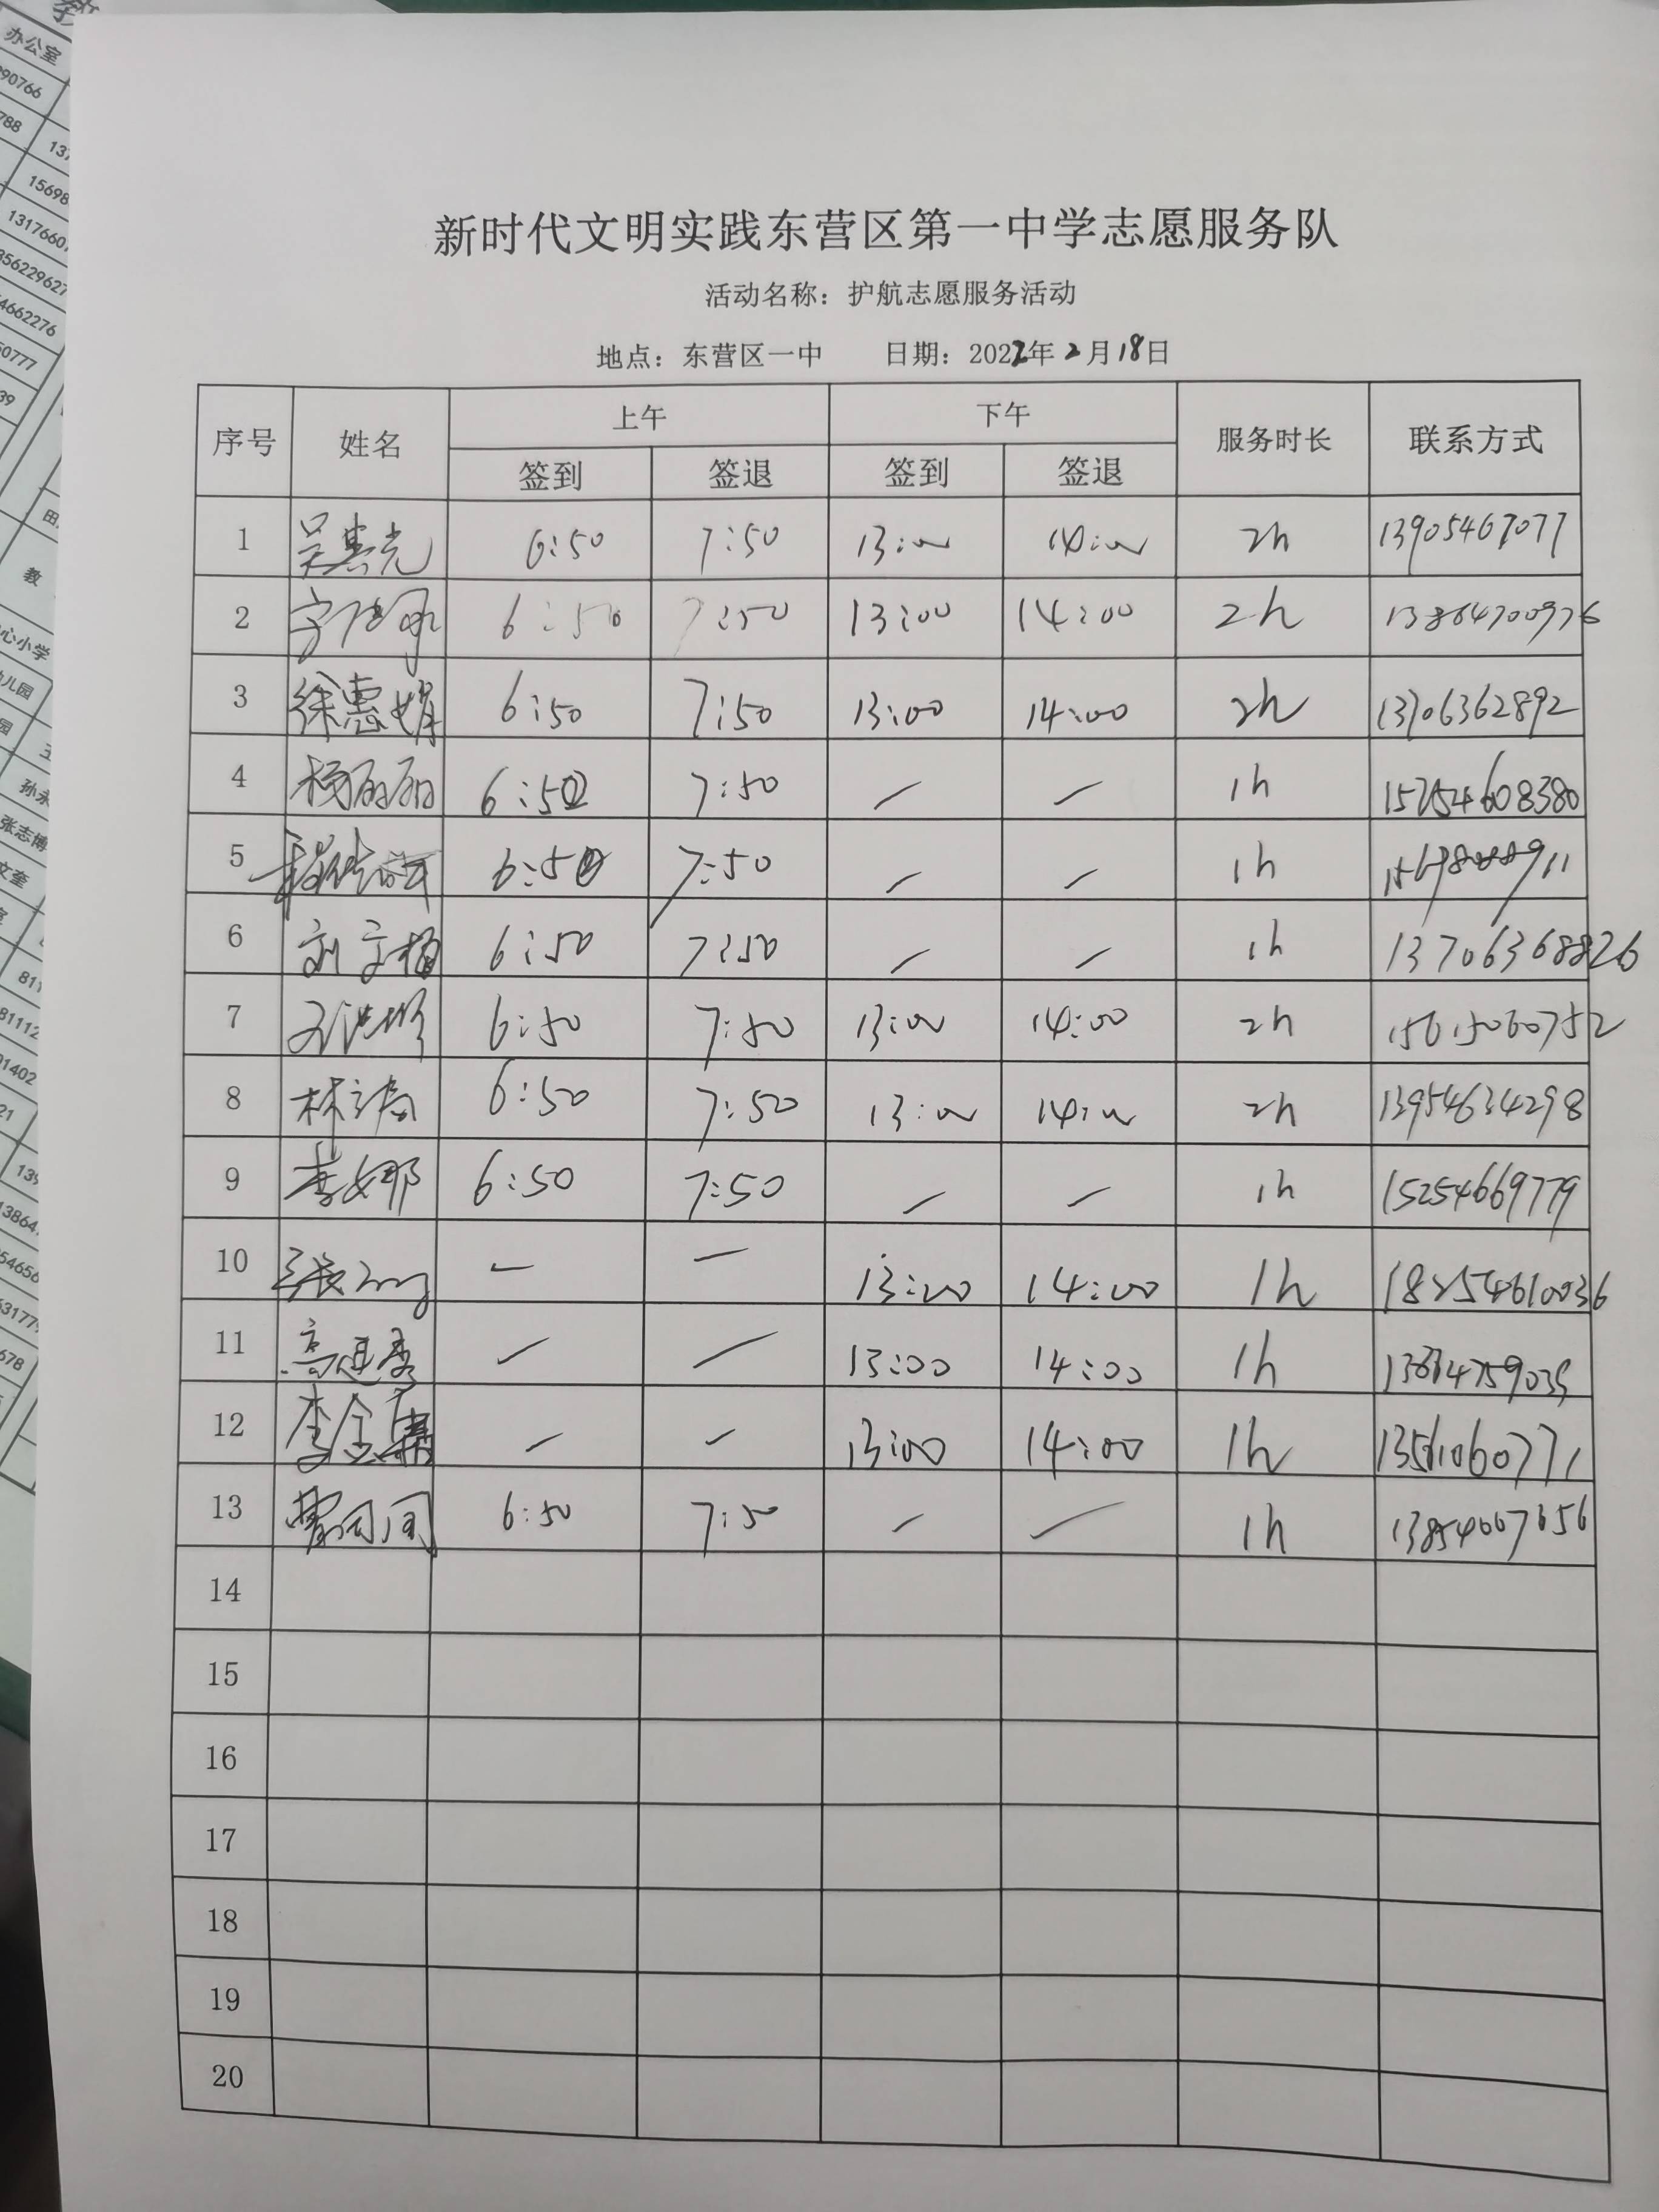 新时代文明实践东营区第一中学志愿服务队
活动名称：护航志愿服务活动
地点：东营区一中 日期：2022年2月18日
序号 姓名 上午 下午 服务时长 联系方式
签到 签退 签到 签退
1 6:50 7:50 13:00 14:00 2h 13905467077
2 6:50 7:50 13:00 14:00 2h 13864700976
3 徐惠娟 6:50 7:50 13:00 14:00 2h 13706362892
4 杨丽丽 6:50 7:50 / / 1h 15254608380
5 6:50 7:50 / / 1h
6 6:50 7:50 / / 1h 13706368826
7 6:50 7:50 13:00 14:00 2h 15615060752
8 6:50 7:50 13:00 14:00 2h 13954634298
9 李娜 6:50 7:50 / / 1h 15254669779
10 — — 13:00 14:00 1h 18254610036
11 / / 13:00 14:00 1h
12 / / 13:00 14:00 1h 13561060771
13 6:50 7:50 / / 1h
14
15
16
17
18
19
20
办公室
90766
788
15698
1317660
35622962
4662276
50777
39
教
心小学
儿园
张志博
文奎
811
81112
01402
21
1386
54656
63177
678